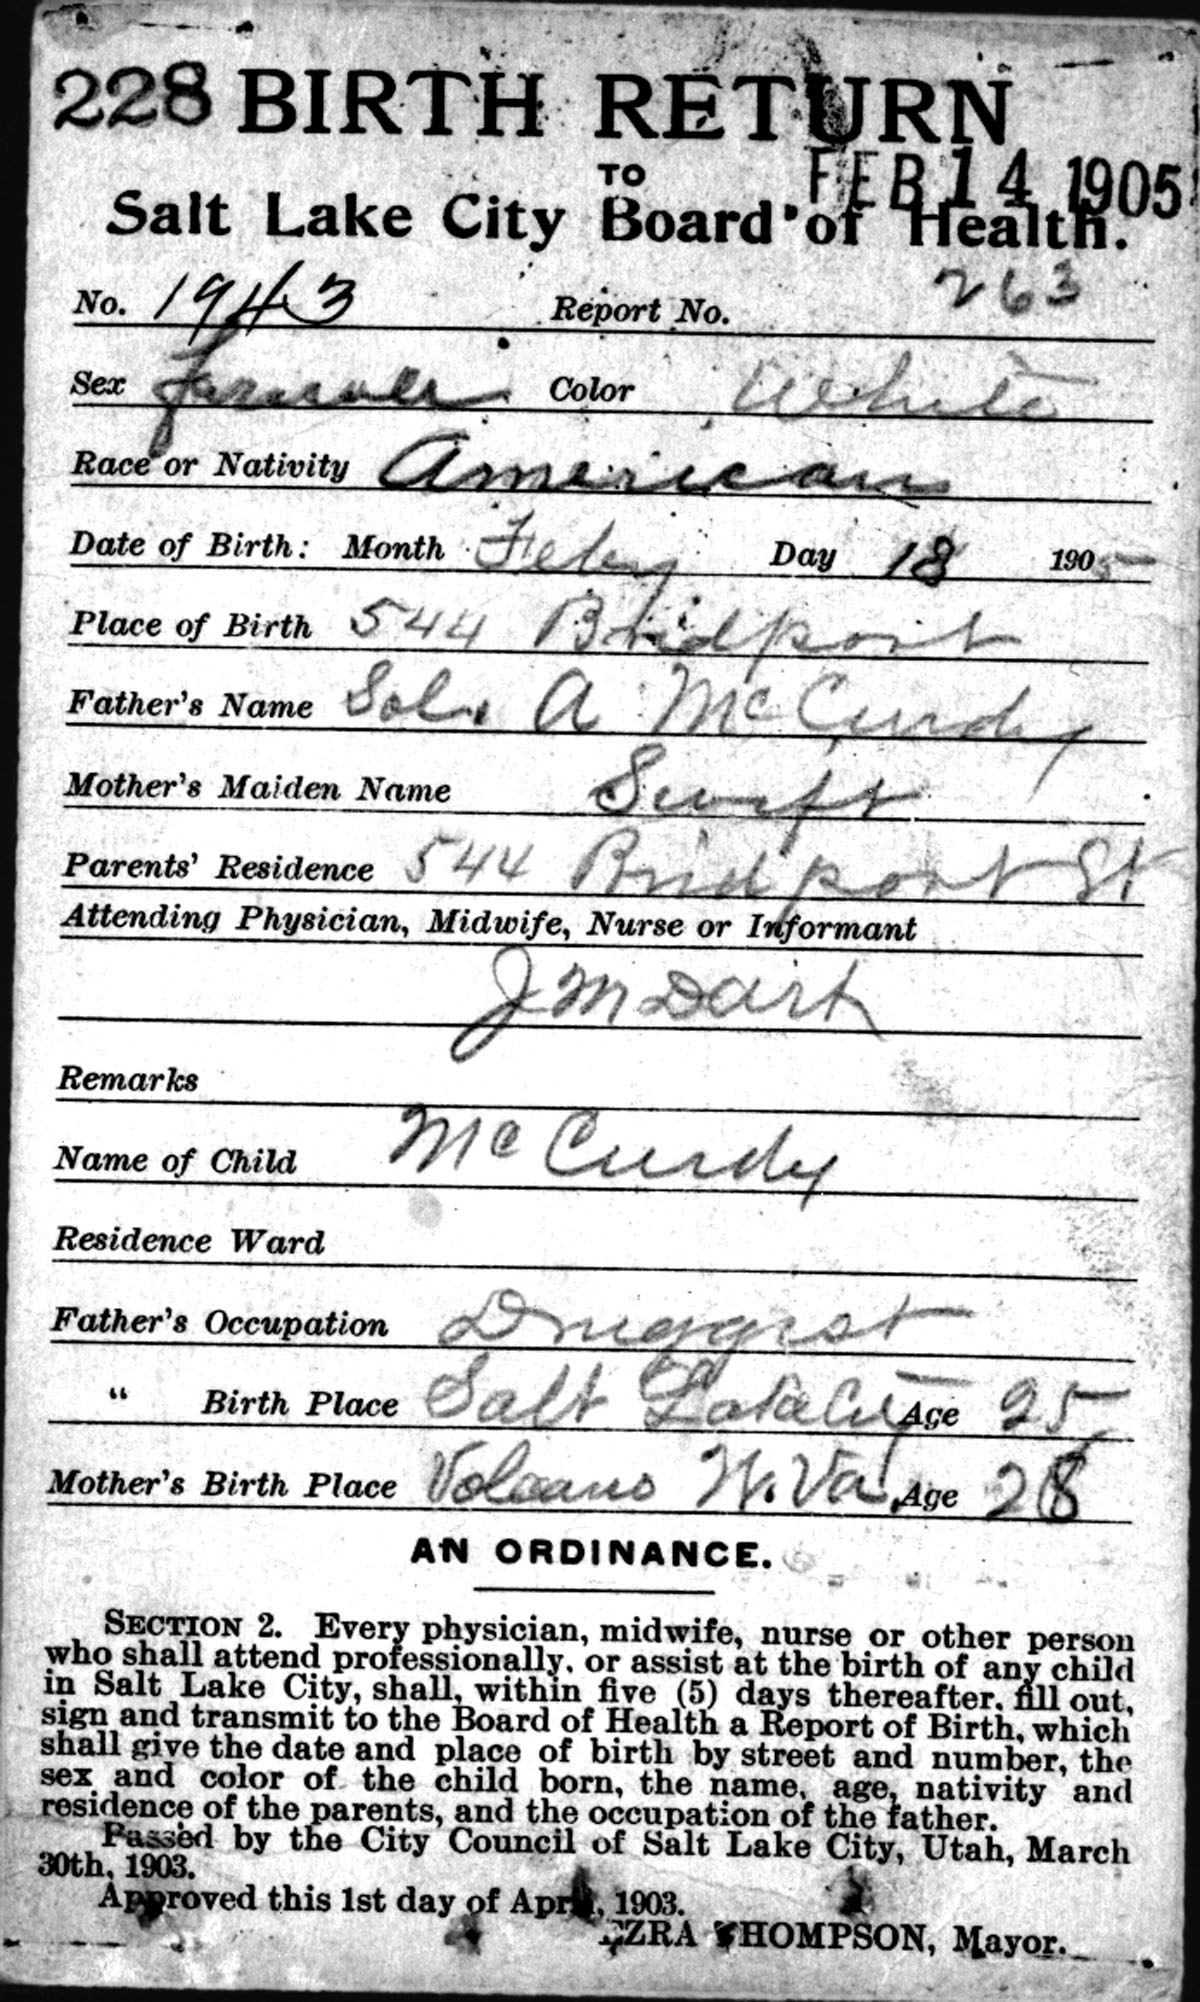 228 BIRTH RETURN
TO
FEB 14 1905
Salt Lake City Board of Health.
No. 1943 Report No. 263
Sex female Color White
Race or Nativity American
Date of Birth: Month Feby Day 18 1905
Place of Birth 544 Bridport
Father's Name Sol. A McCurdy
Mother's Maiden Name Swift
Parents' Residence 544 Bridport St
Attending Physician, Midwife, Nurse or Informant
J M Dart
Remarks
Name of Child McCurdy
Residence Ward
Father's Occupation Druggist
" Birth Place Salt Lake City Age 25
Mother's Birth Place Volcano W. Va. Age 28
AN ORDINANCE.
SECTION 2. Every physician, midwife, nurse or other person
who shall attend professionally, or assist at the birth of any child
in Salt Lake City, shall, within five (5) days thereafter, fill out,
sign and transmit to the Board of Health a Report of Birth, which
shall give the date and place of birth by street and number, the
sex and color of the child born, the name, age, nativity and
residence of the parents, and the occupation of the father.
Passed by the City Council of Salt Lake City, Utah, March
30th, 1903.
Approved this 1st day of April, 1903.
EZRA THOMPSON, Mayor.